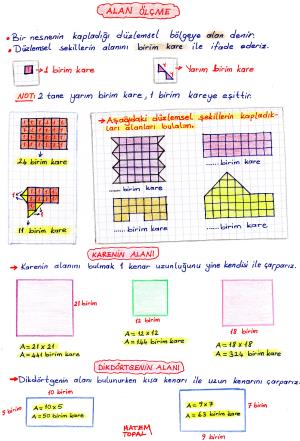 ALAN ÖLÇME
• Bir nesnenin kapladığı düzlemsel bölgeye alan denir.
• Düzlemsel şekillerin alanını birim kare ile ifade ederiz.
→ 1 birim kare
→ Yarım birim kare
NOT: 2 tane yarım birim kare, 1 birim kareye eşittir.
24 birim kare
11 birim kare
→ Aşağıdaki düzlemsel şekillerin kapladık-
ları alanları bulalım.
...... birim kare
...... birim kare
...... birim kare
...... birim kare
KARENİN ALANI
→ Karenin alanını bulmak 1 kenar uzunluğunu yine kendisi ile çarparız.
21 birim
A = 21 x 21
A = 441 birim kare
12 birim
A = 12 x 12
A = 144 birim kare
18 birim
A = 18 x 18
A = 324 birim kare
DİKDÖRTGENİN ALANI
→ Dikdörtgenin alanı bulunurken kısa kenarı ile uzun kenarını çarparız.
10 birim
5 birim
A = 10 x 5
A = 50 birim kare
HATEM
TOPAL
A = 9 x 7
A = 63 birim kare
7 birim
9 birim